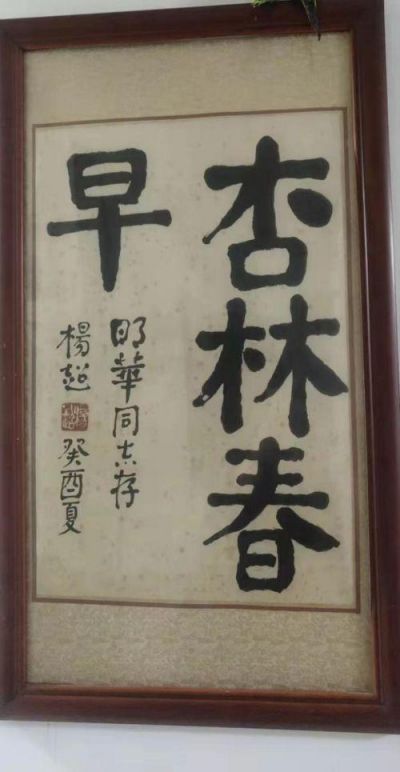 杏林春
早
明華同志存
楊超
癸酉夏